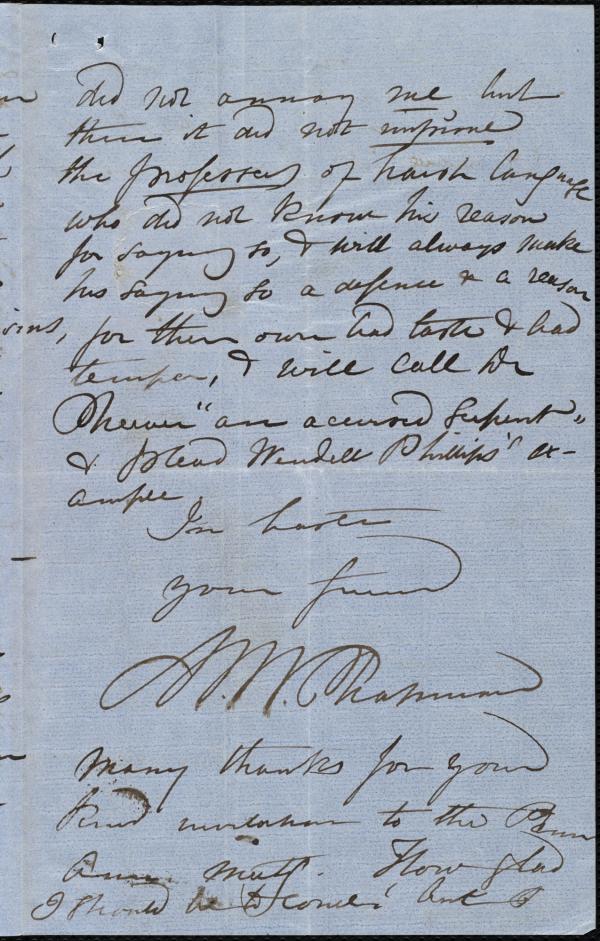 did not annoy me but
then it did not improve
the professors of harsh language
who did not know his reason
for saying so, & will always make
his saying so a defence & a reason
for their own bad taste & bad
temper, & will call Dr
Cheever "an accursed Serpent"
& plead Wendell Phillips' ex-
ample
In haste
your friend
M. W. Chapman
Many thanks for your
kind invitation to the Penn
Ann. meetg. How glad
I should be to come! but I